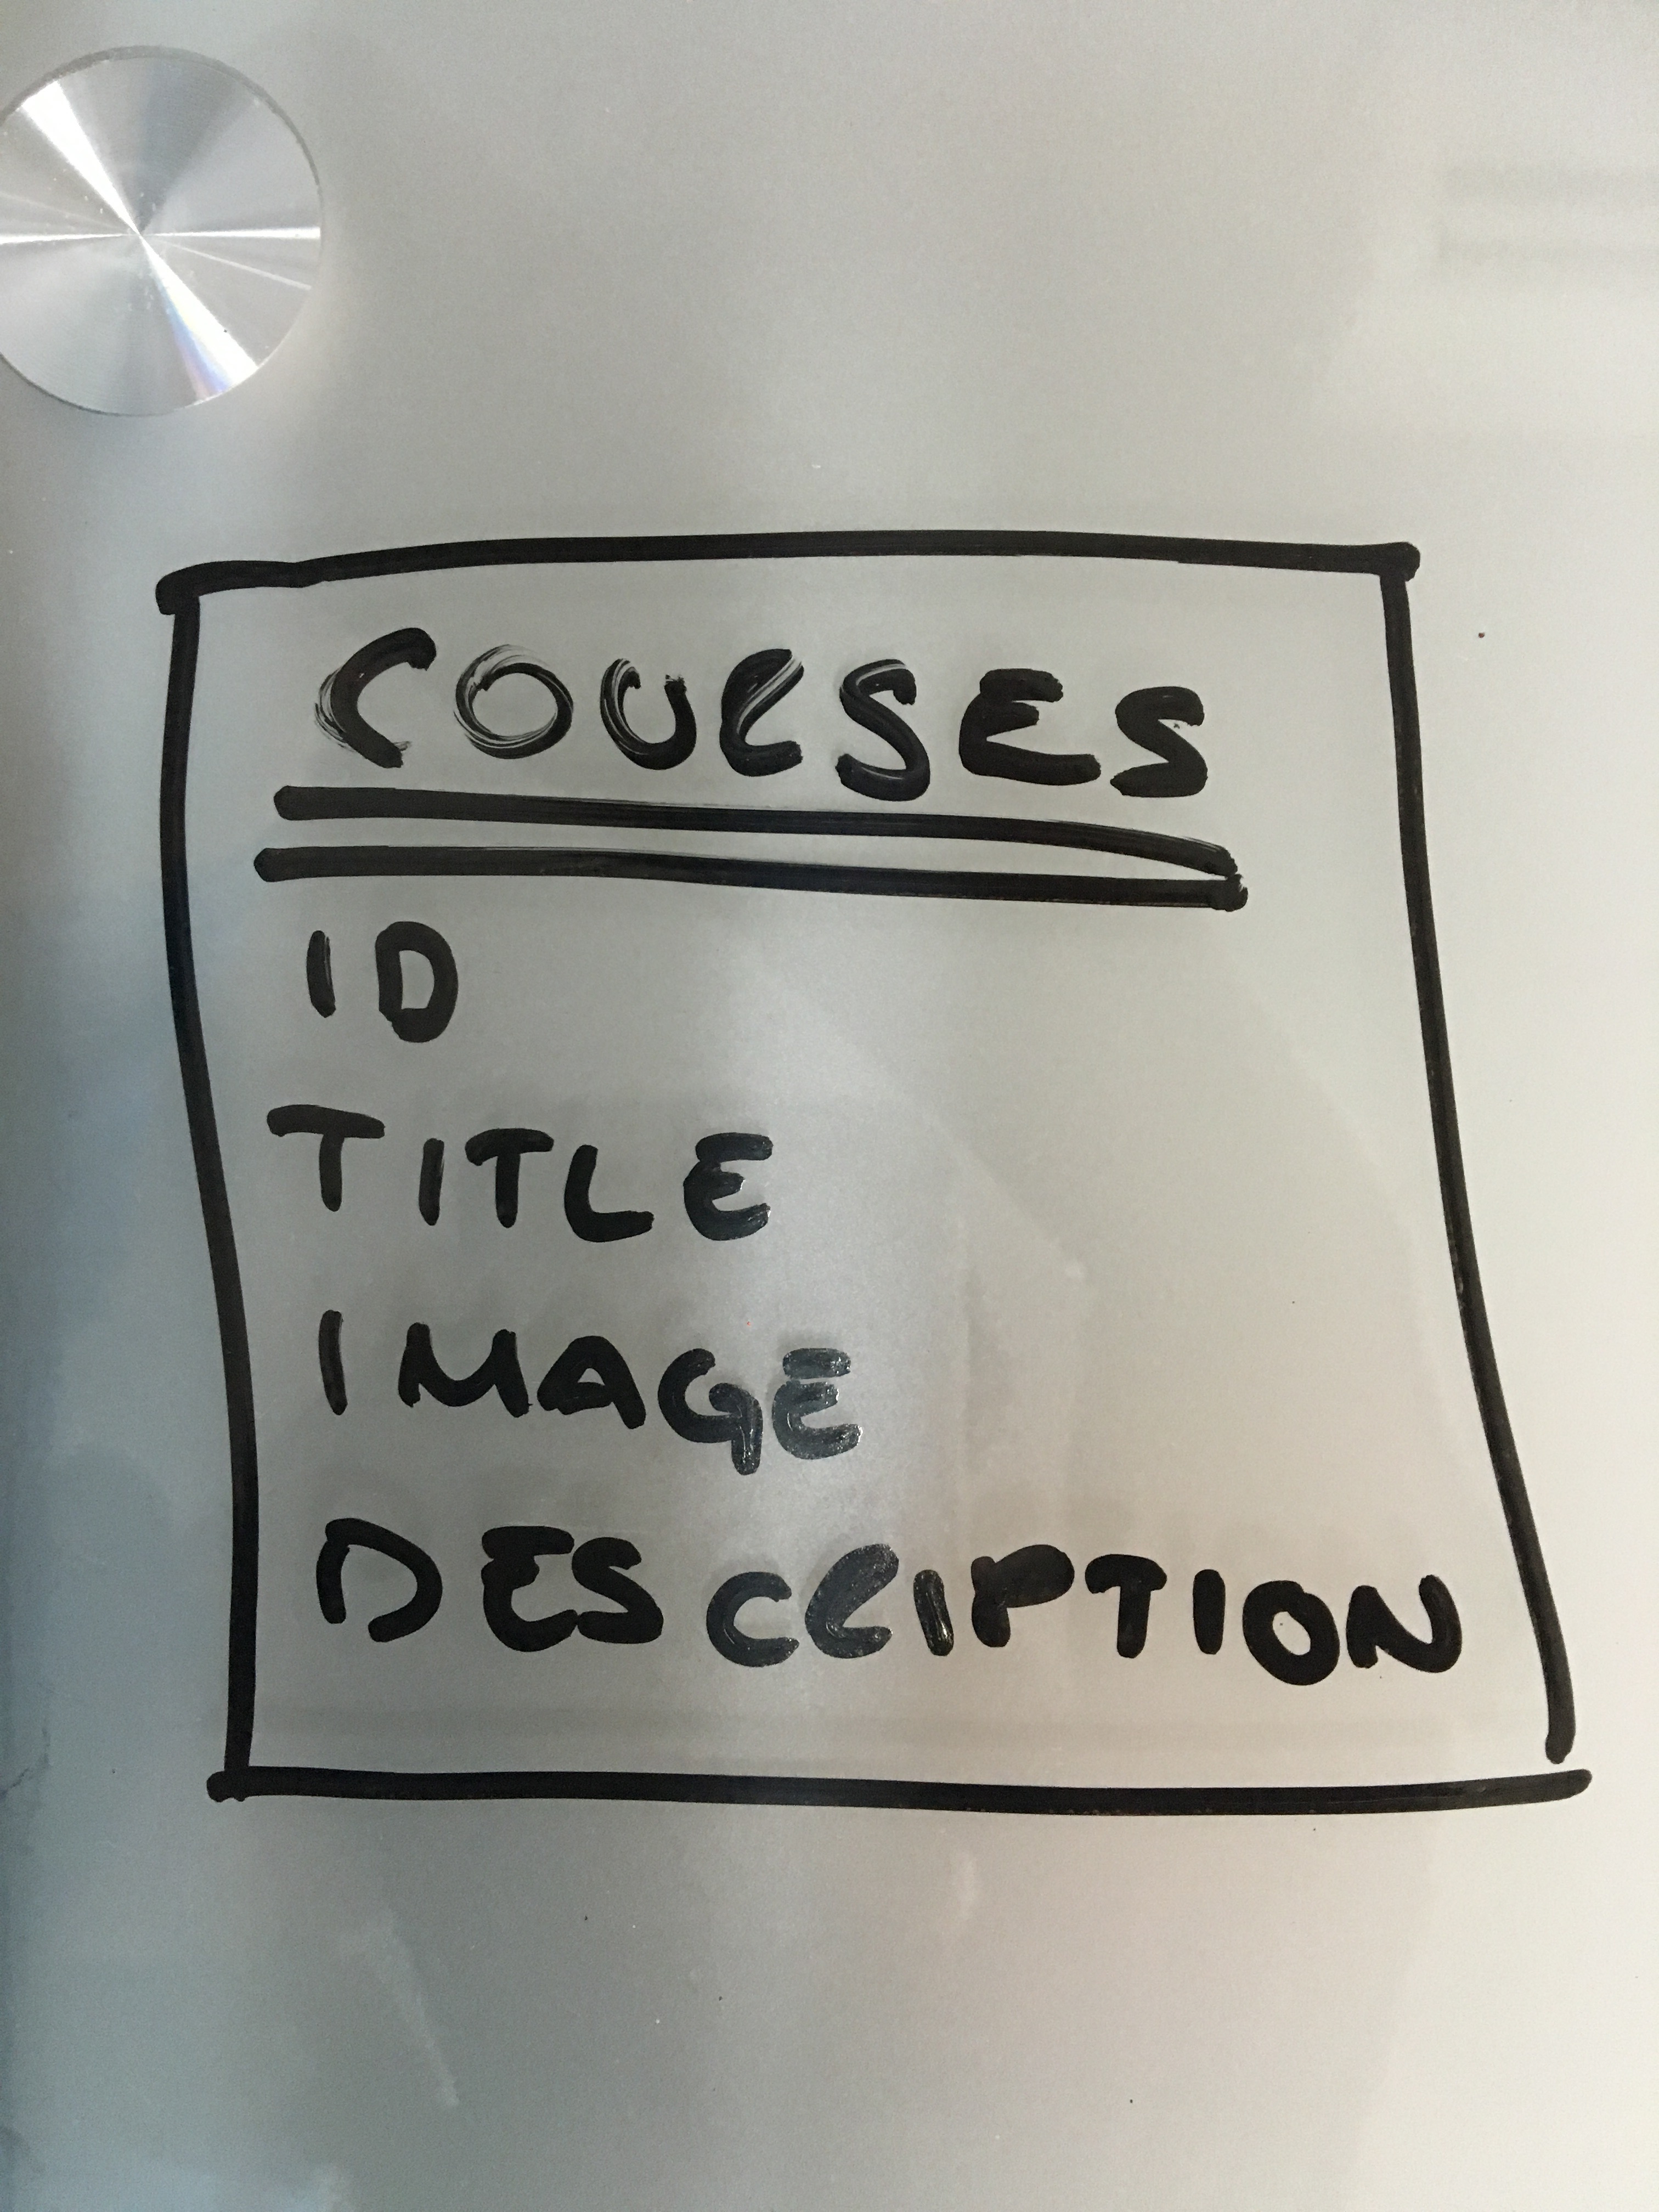 COURSES
ID
TITLE
IMAGE
DESCRIPTION